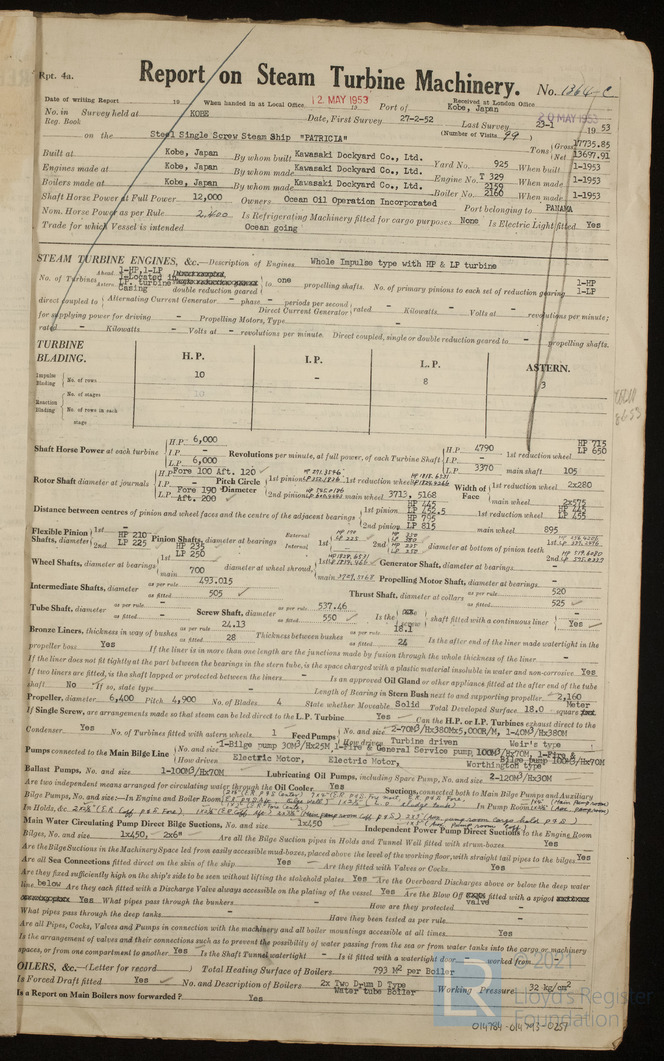 Rpt. 4a.
Report on Steam Turbine Machinery. No. 1364-C
Date of writing Report 19 When handed in at Local Office 12 MAY 1953 19 Port of Kobe, Japan Received at London Office 20 MAY 1953
No. in Reg. Book Survey held at KOBE Date, First Survey 27-2-52 Last Survey 23-1 1953
(Number of Visits 99)
on the Steel Single Screw Steam Ship "PATRICIA" Tons Gross 17735.85 Net 13697.91
Built at Kobe, Japan By whom built Kawasaki Dockyard Co., Ltd. Yard No. 925 When built 1-1953
Engines made at Kobe, Japan By whom made Kawasaki Dockyard Co., Ltd. Engine No. T 329 When made 1-1953
Boilers made at Kobe, Japan By whom made Kawasaki Dockyard Co., Ltd. Boiler No. 2159 2160 When made 1-1953
Shaft Horse Power at Full Power 12,000 Owners Ocean Oil Operation Incorporated Port belonging to PANAMA
Nom. Horse Power as per Rule 2,400 Is Refrigerating Machinery fitted for cargo purposes None Is Electric Light fitted Yes
Trade for which Vessel is intended Ocean going
STEAM TURBINE ENGINES, &c.—Description of Engines Whole Impulse type with HP & LP turbine
No. of Turbines Ahead 1-HP,1-LP Astern 1-Located in LP. turbine Casing double reduction geared to one propelling shafts. No. of primary pinions to each set of reduction gearing 1-HP 1-LP
direct coupled to Alternating Current Generator - phase - periods per second Direct Current Generator rated - Kilowatts - Volts at - revolutions per minute;
for supplying power for driving - Propelling Motors, Type -
rated - Kilowatts - Volts at - revolutions per minute. Direct coupled, single or double reduction geared to - propelling shafts.
TURBINE BLADING. H.P. I.P. L.P. ASTERN.
Impulse Blading No. of rows 10 - 8 3
Reaction Blading No. of stages 10
No. of rows in each stage
Shaft Horse Power at each turbine H.P. 6,000 I.P. - L.P. 6,000 Revolutions per minute, at full power, of each Turbine Shaft H.P. 4790 I.P. - L.P. 3370 1st reduction wheel HP 715 LP 650 main shaft 105
Rotor Shaft diameter at journals H.P. Fore 100 Aft. 120 I.P. - L.P. Fore 190 Aft. 200 Pitch Circle Diameter 1st pinion 1st reduction wheel 2nd pinion main wheel 3713, 5168 Width of Face 1st reduction wheel 2x280 main wheel 2x575
Distance between centres of pinion and wheel faces and the centre of the adjacent bearings 1st pinion HP 445 LP 442.5 2nd pinion HP 795 LP 815 1st reduction wheel HP 445 LP 455 main wheel 895
Flexible Pinion Shafts, diameter 1st - 2nd HP 210 LP 225 Pinion Shafts, diameter at bearings External Internal 1st 2nd HP 235 LP 250 diameter at bottom of pinion teeth 1st 2nd
Wheel Shafts, diameter at bearings 1st main 700 diameter at wheel shroud, 1st main Generator Shaft, diameter at bearings - Propelling Motor Shaft, diameter at bearings -
Intermediate Shafts, diameter as per rule 493.015 as fitted 505 Thrust Shaft, diameter at collars as per rule 520 as fitted 525
Tube Shaft, diameter as per rule - as fitted - Screw Shaft, diameter as per rule 537.46 as fitted 550 Is the screw shaft fitted with a continuous liner Yes
Bronze Liners, thickness in way of bushes as per rule 24.13 as fitted 28 Thickness between bushes as per rule 18.1 as fitted 24 Is the after end of the liner made watertight in the
propeller boss Yes If the liner is in more than one length are the junctions made by fusion through the whole thickness of the liner -
If the liner does not fit tightly at the part between the bearings in the stern tube, is the space charged with a plastic material insoluble in water and non-corrosive Yes
If two liners are fitted, is the shaft lapped or protected between the liners - Is an approved Oil Gland or other appliance fitted at the after end of the tube
shaft No If so, state type - Length of Bearing in Stern Bush next to and supporting propeller 2,160
Propeller, diameter 6,400 Pitch 4,900 No. of Blades 4 State whether Moveable Solid Total Developed Surface 18.0 square Meter
If Single Screw, are arrangements made so that steam can be led direct to the L.P. Turbine Yes Can the H.P. or I.P. Turbines exhaust direct to the
Condenser Yes No. of Turbines fitted with astern wheels 1 Feed Pumps No. and size 2-70M3/Hx380Mx5,000R/M, 1-40M3/Hx380M How driven Turbine driven Weir's type
Pumps connected to the Main Bilge Line No. and size 1-Bilge pump 30M3/Hx25M,1-Fire & General Service pump 100M3/Hx70M, 1-Fire & Bilge pump 100M3/Hx70M How driven Electric Motor, Electric Motor, Worthington type
Ballast Pumps, No. and size 1-100M3/Hx70M Lubricating Oil Pumps, including Spare Pump, No. and size 2-120M3/Hx30M
Are two independent means arranged for circulating water through the Oil Cooler Yes Suctions, connected both to Main Bilge Pumps and Auxiliary
Bilge Pumps, No. and size:—In Engine and Boiler Room In Pump Room
In Holds, &c.
Main Water Circulating Pump Direct Bilge Suctions, No. and size 1x450 Independent Power Pump Direct Suctions to the Engine Room
Bilges, No. and size 1x450, 2x6" Are all the Bilge Suction pipes in Holds and Tunnel Well fitted with strum-boxes Yes
Are the Bilge Suctions in the Machinery Space led from easily accessible mud-boxes, placed above the level of the working floor, with straight tail pipes to the bilges Yes
Are all Sea Connections fitted direct on the skin of the ship Yes Are they fitted with Valves or Cocks Yes
Are they fixed sufficiently high on the ship's side to be seen without lifting the stokehold plates Yes Are the Overboard Discharges above or below the deep water
line below Are they each fitted with a Discharge Valve always accessible on the plating of the vessel Yes Are the Blow Off valve fitted with a spigot
Yes What pipes pass through the bunkers - How are they protected -
What pipes pass through the deep tanks - Have they been tested as per rule -
Are all Pipes, Cocks, Valves and Pumps in connection with the machinery and all boiler mountings accessible at all times Yes
Is the arrangement of valves and their connections such as to prevent the possibility of water passing from the sea or from water tanks into the cargo or machinery
spaces, or from one compartment to another Yes Is the Shaft Tunnel watertight - Is it fitted with a watertight door - worked from -
BOILERS, &c.—(Letter for record ) Total Heating Surface of Boilers 793 M2 per Boiler
Is Forced Draft fitted Yes No. and Description of Boilers 2x Two Drum D Type Water tube Boiler Working Pressure 32 kg/cm2
Is a Report on Main Boilers now forwarded? Yes
© 2021
LR
Lloyd's Register
Foundation
014784-014793-0257